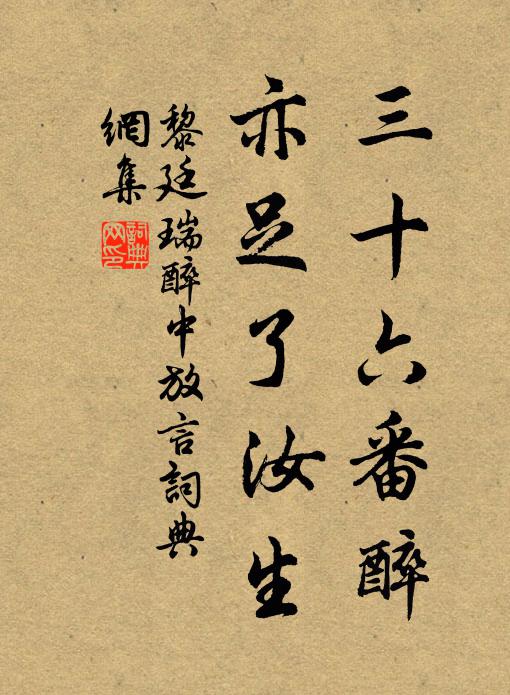 三十六番醉
亦足了汝生
黎廷瑞醉中放言詞典
網集
詞典
网印